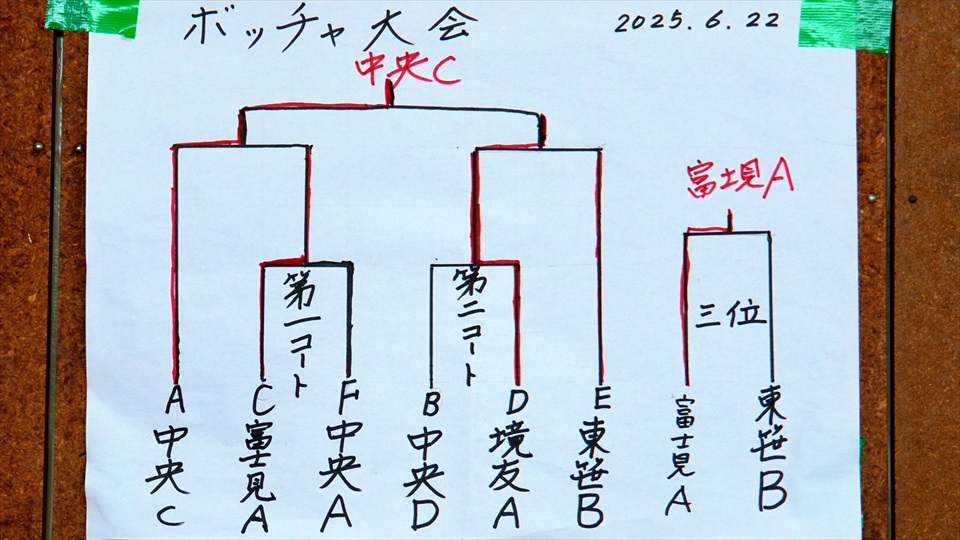 ボッチャ大会
2025.6.22
中央C
富士見A
第一コート
第二コート
三位
A中央C
C富士見A
F中央A
B中央D
D境友A
E東笹B
富士見A
東笹B